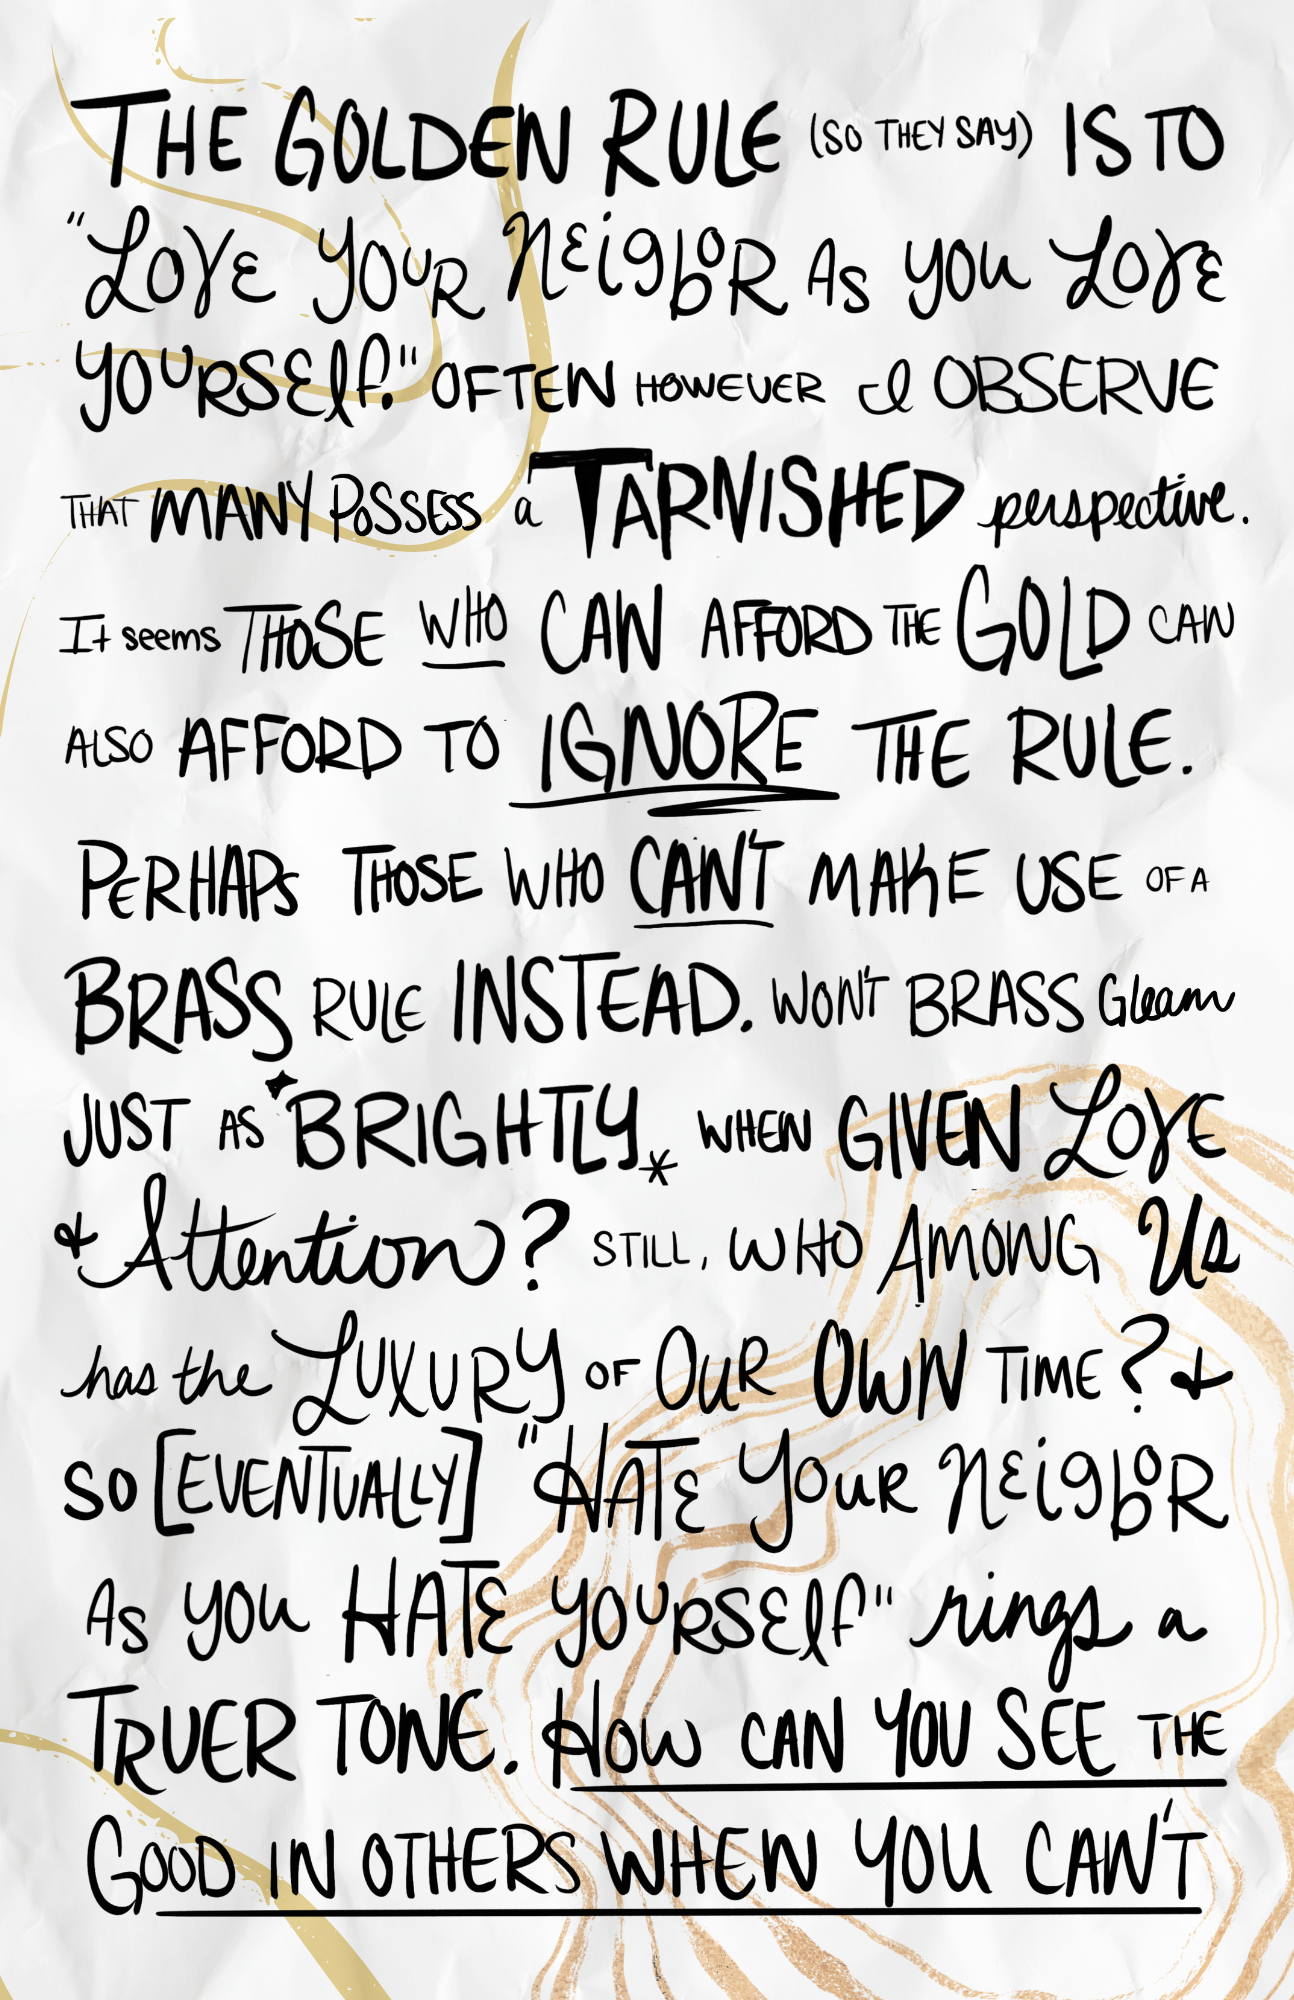 THE GOLDEN RULE (SO THEY SAY) IS TO
"LOVE YOUR NEIGBOR AS YOU LOVE
YOURSElf." OFTEN HOWEVER I OBSERVE
THAT MANY POSSESS a TARNISHED perspective.
It seems THOSE WHO CAN AFFORD THE GOLD CAN
ALSO AFFORD TO IGNORE THE RULE.
PERHAPS THOSE WHO CAN'T MAKE USE OF A
BRASS RULE INSTEAD. WON'T BRASS Gleam
JUST AS BRIGHTLY* WHEN GIVEN LOVE
& Attention? STILL, WHO AMONG Us
has the LUXURY OF OUR OWN TIME? &
SO [EVENTUALLY] "HATE YOUR NEIGBOR
AS YOU HATE YOURSElf" rings a
TRUER TONE. HOW CAN YOU SEE THE
GOOD IN OTHERS WHEN YOU CAN'T